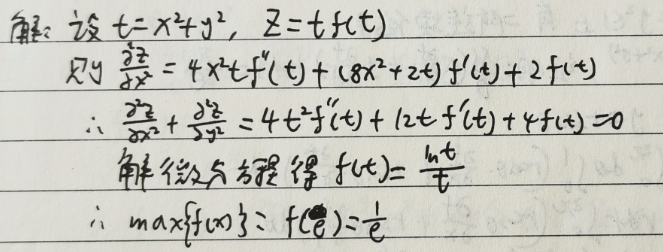 解: 设 t=x²+y², Z=tf(t)
则 ∂²z/∂x² = 4x²tf''(t)+(8x²+2t)f'(t)+2f(t)
∴ ∂²z/∂x² + ∂²z/∂y² = 4t²f''(t)+12tf'(t)+4f(t)=0
解微分方程得 f(t)= lnt/t
∴ max{f(x)}= f(e)=1/e